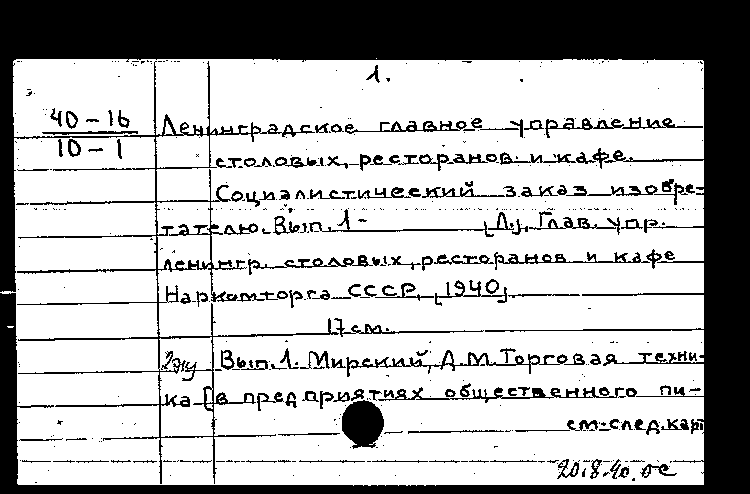 1.
40-16
10-1
Ленинградское главное управление
столовых, ресторанов и кафе.
Социалистический заказ изобре=
тателю. Вып. 1- [Л.], Глав. упр.
ленингр. столовых, ресторанов и кафе
Наркомторга СССР, [1940].
17 см.
2эку Вып. 1. Мирский, Д.М. Торговая техни-
ка [в предприятиях общественного пи-
см-след.карт
20.8.40.